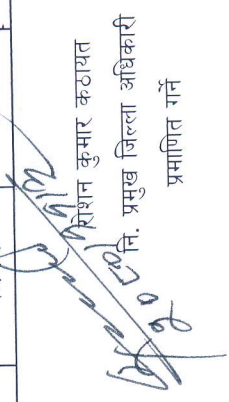 रोशन कुमार कठायत
नि. प्रमुख जिल्ला अधिकारी
प्रमाणित गर्ने